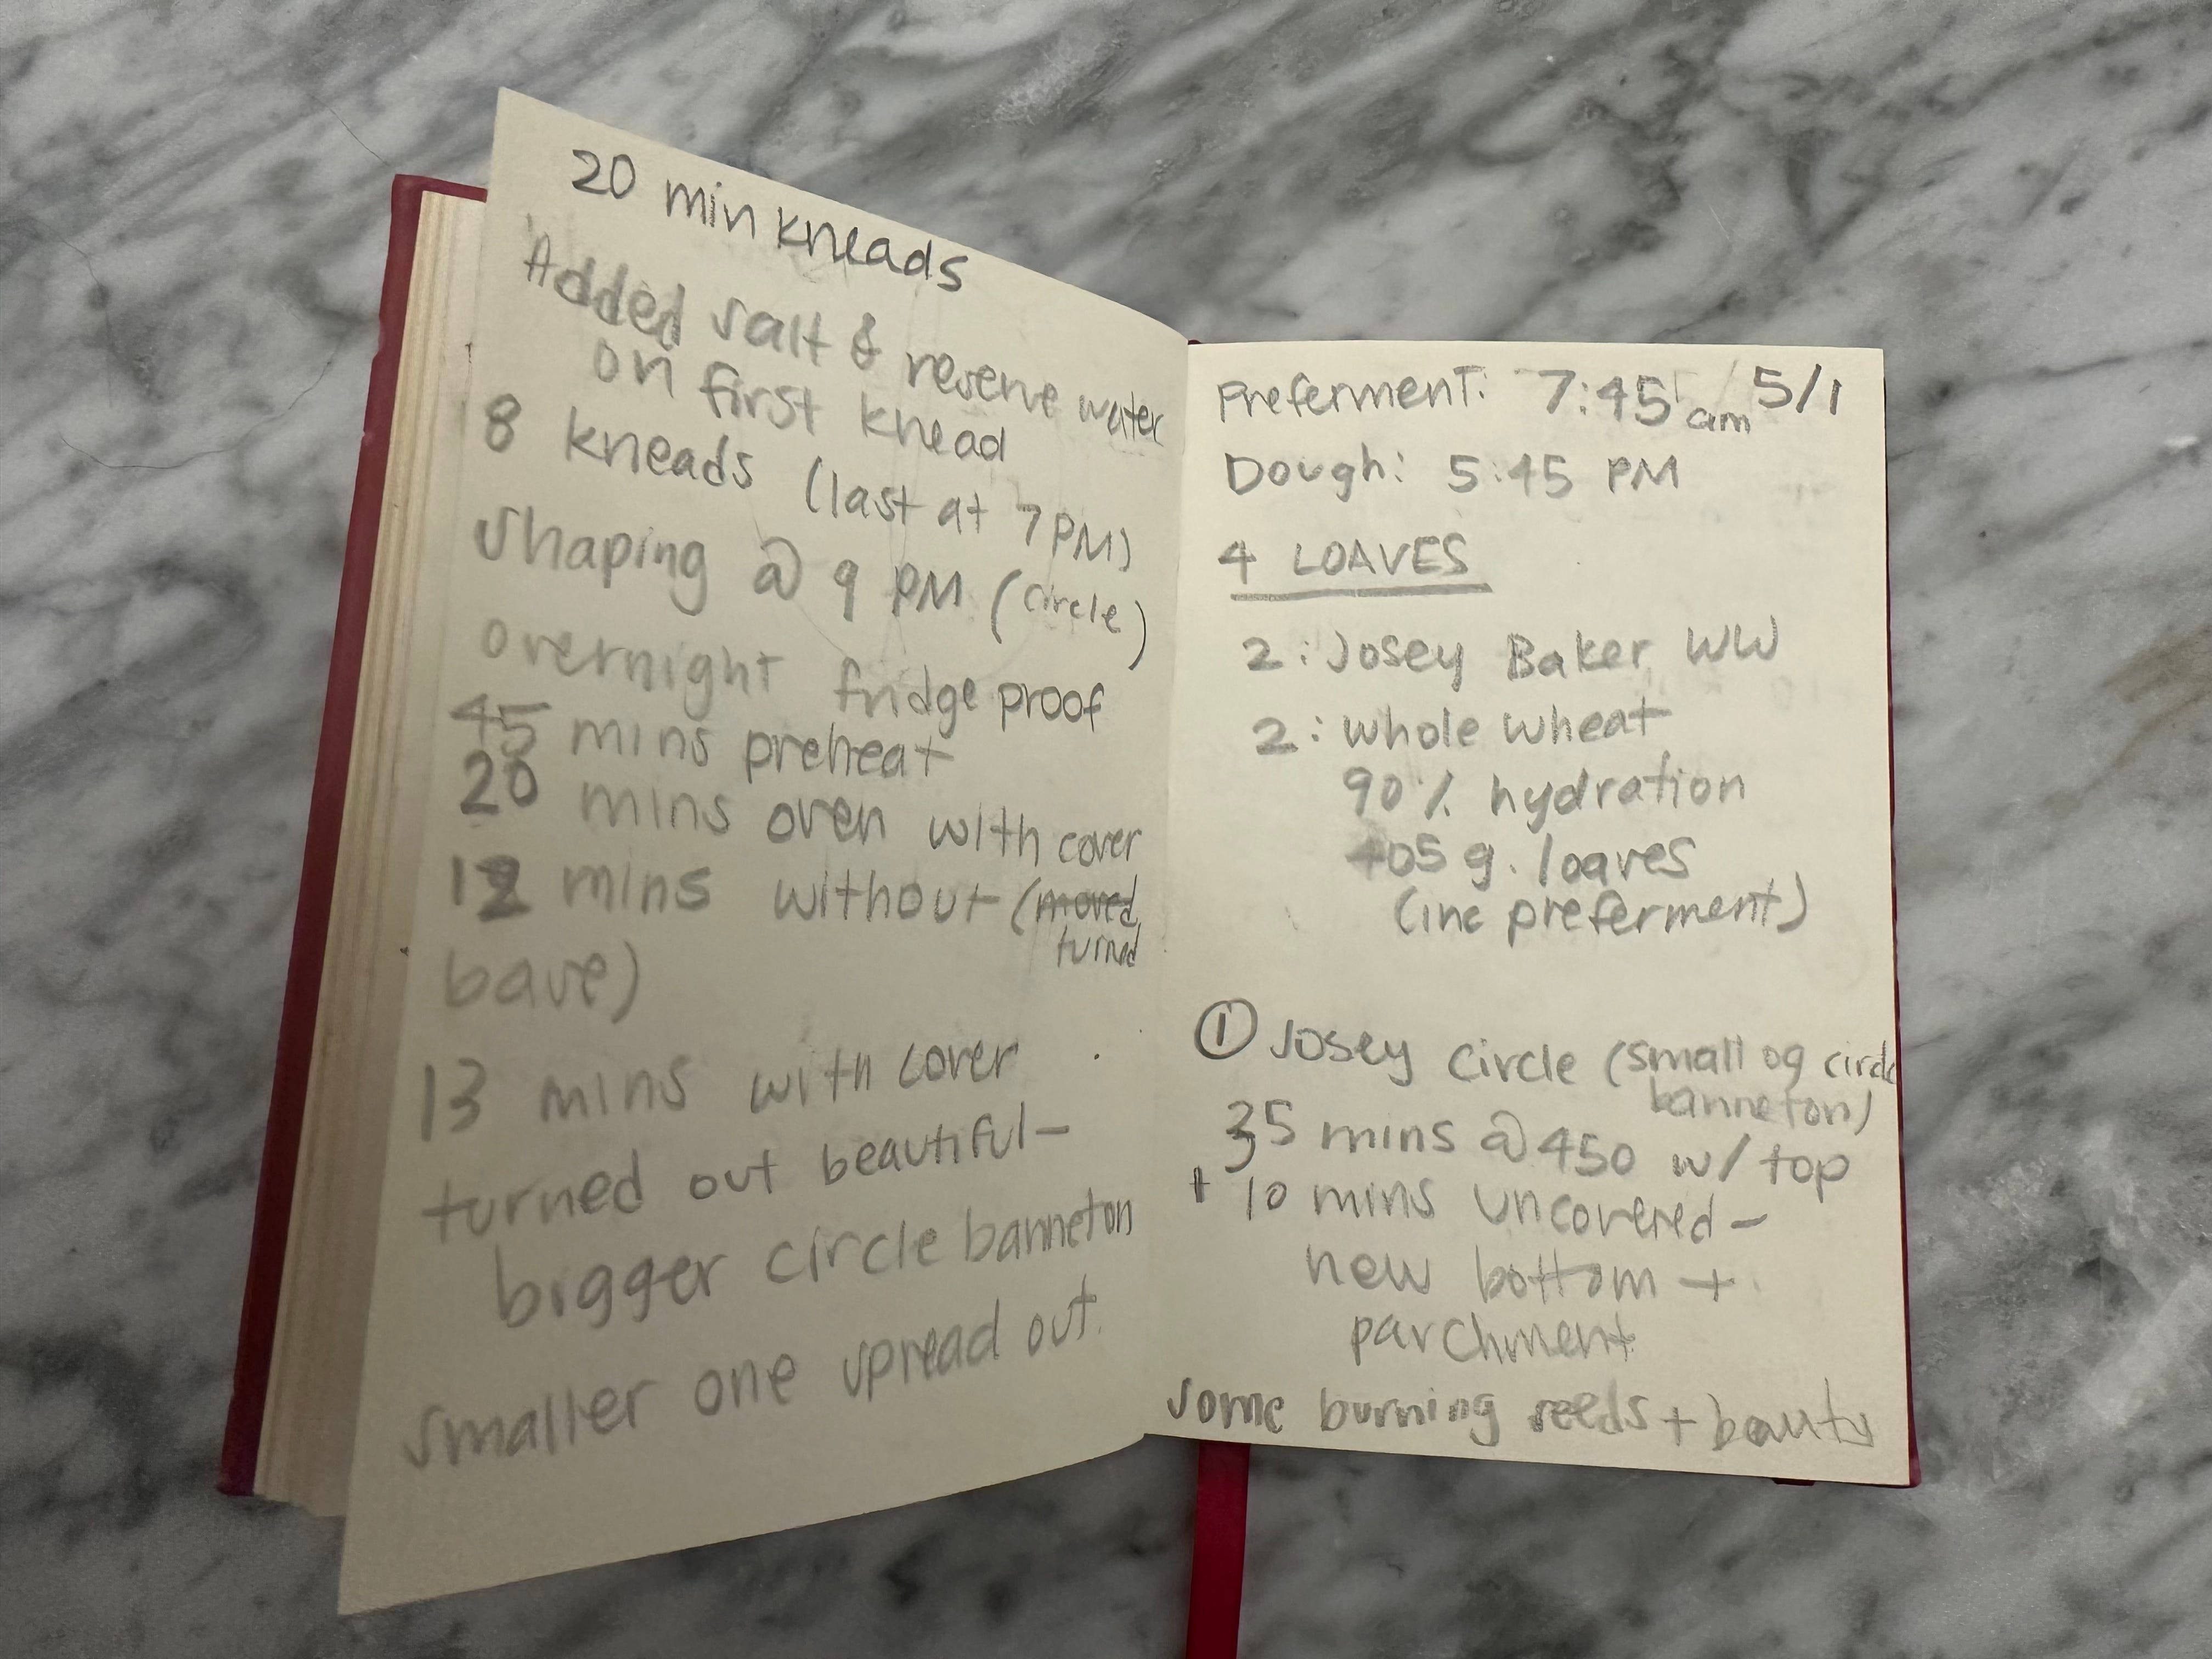 20 min kneads
Added salt & reserve water
on first knead
8 kneads (last at 7PM)
Shaping @ 9 PM (circle)
overnight fridge proof
45 mins preheat
20 mins oven with cover
12 mins without (moved
turned
base)
13 mins with cover
turned out beautiful-
bigger circle banneton
smaller one spread out.
Preferment: 7:45am 5/1
Dough: 5:45 PM
4 LOAVES
2: Josey Baker WW
2: whole wheat
90% hydration
405 g. loaves
(inc preferment)
① Josey circle (small og circle
banneton)
35 mins @ 450 w/ top
+ 10 mins uncovered-
new bottom +
parchment
some burning seeds + beauty